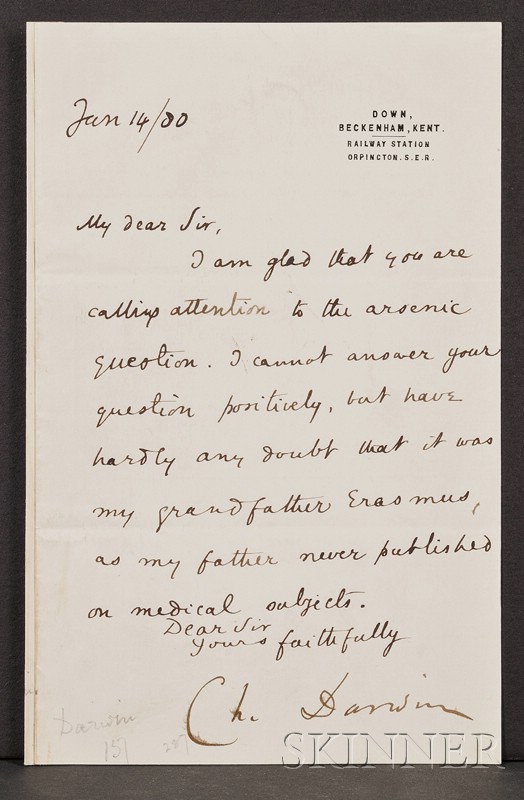 Jan 14/80
DOWN,
BECKENHAM, KENT.
RAILWAY STATION
ORPINGTON. S.E.R.
My dear Sir,
I am glad that you are
calling attention to the arsenic
question. I cannot answer your
question positively, but have
hardly any doubt that it was
my grandfather Erasmus,
as my father never published
on medical subjects.
Dear Sir
Yours faithfully
Ch. Darwin
Darwin
151
287
SKINNER